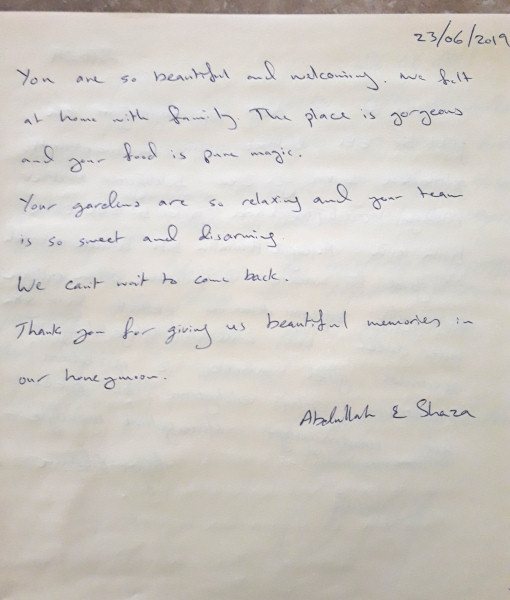 23/06/2019
You are so beautiful and welcoming. We felt
at home with family. The place is gorgeous
and your food is pure magic.
Your gardens are so relaxing and your team
is so sweet and disarming.
We cant wait to come back.
Thank you for giving us beautiful memories in
our honeymoon.
Abdullah & Shaza